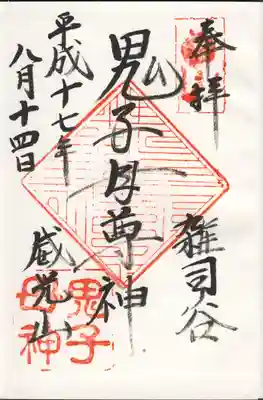 奉拝
雑司谷
鬼子母尊神
威光山
平成十七年
八月十四日
鬼子
母神